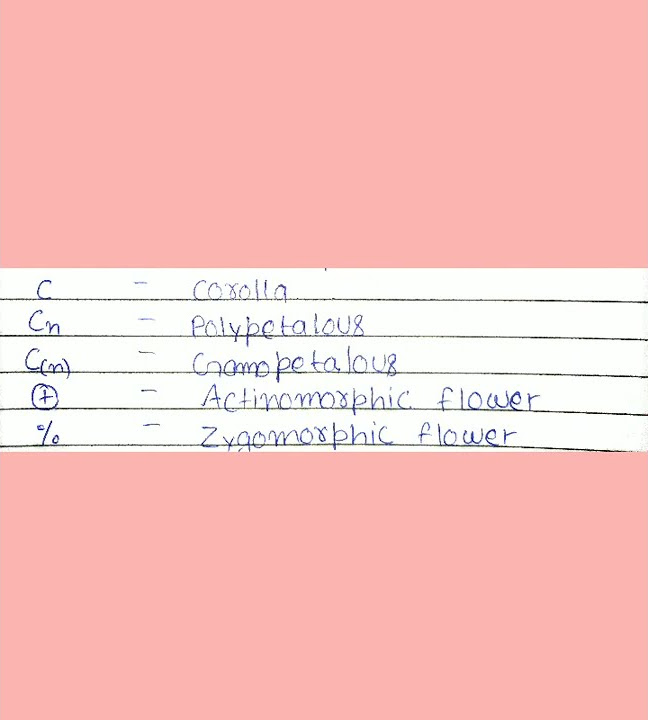 C - Corolla
Cn - Polypetalous
C(n) - Gamopetalous
⊕ - Actinomorphic flower
% - Zygomorphic flower